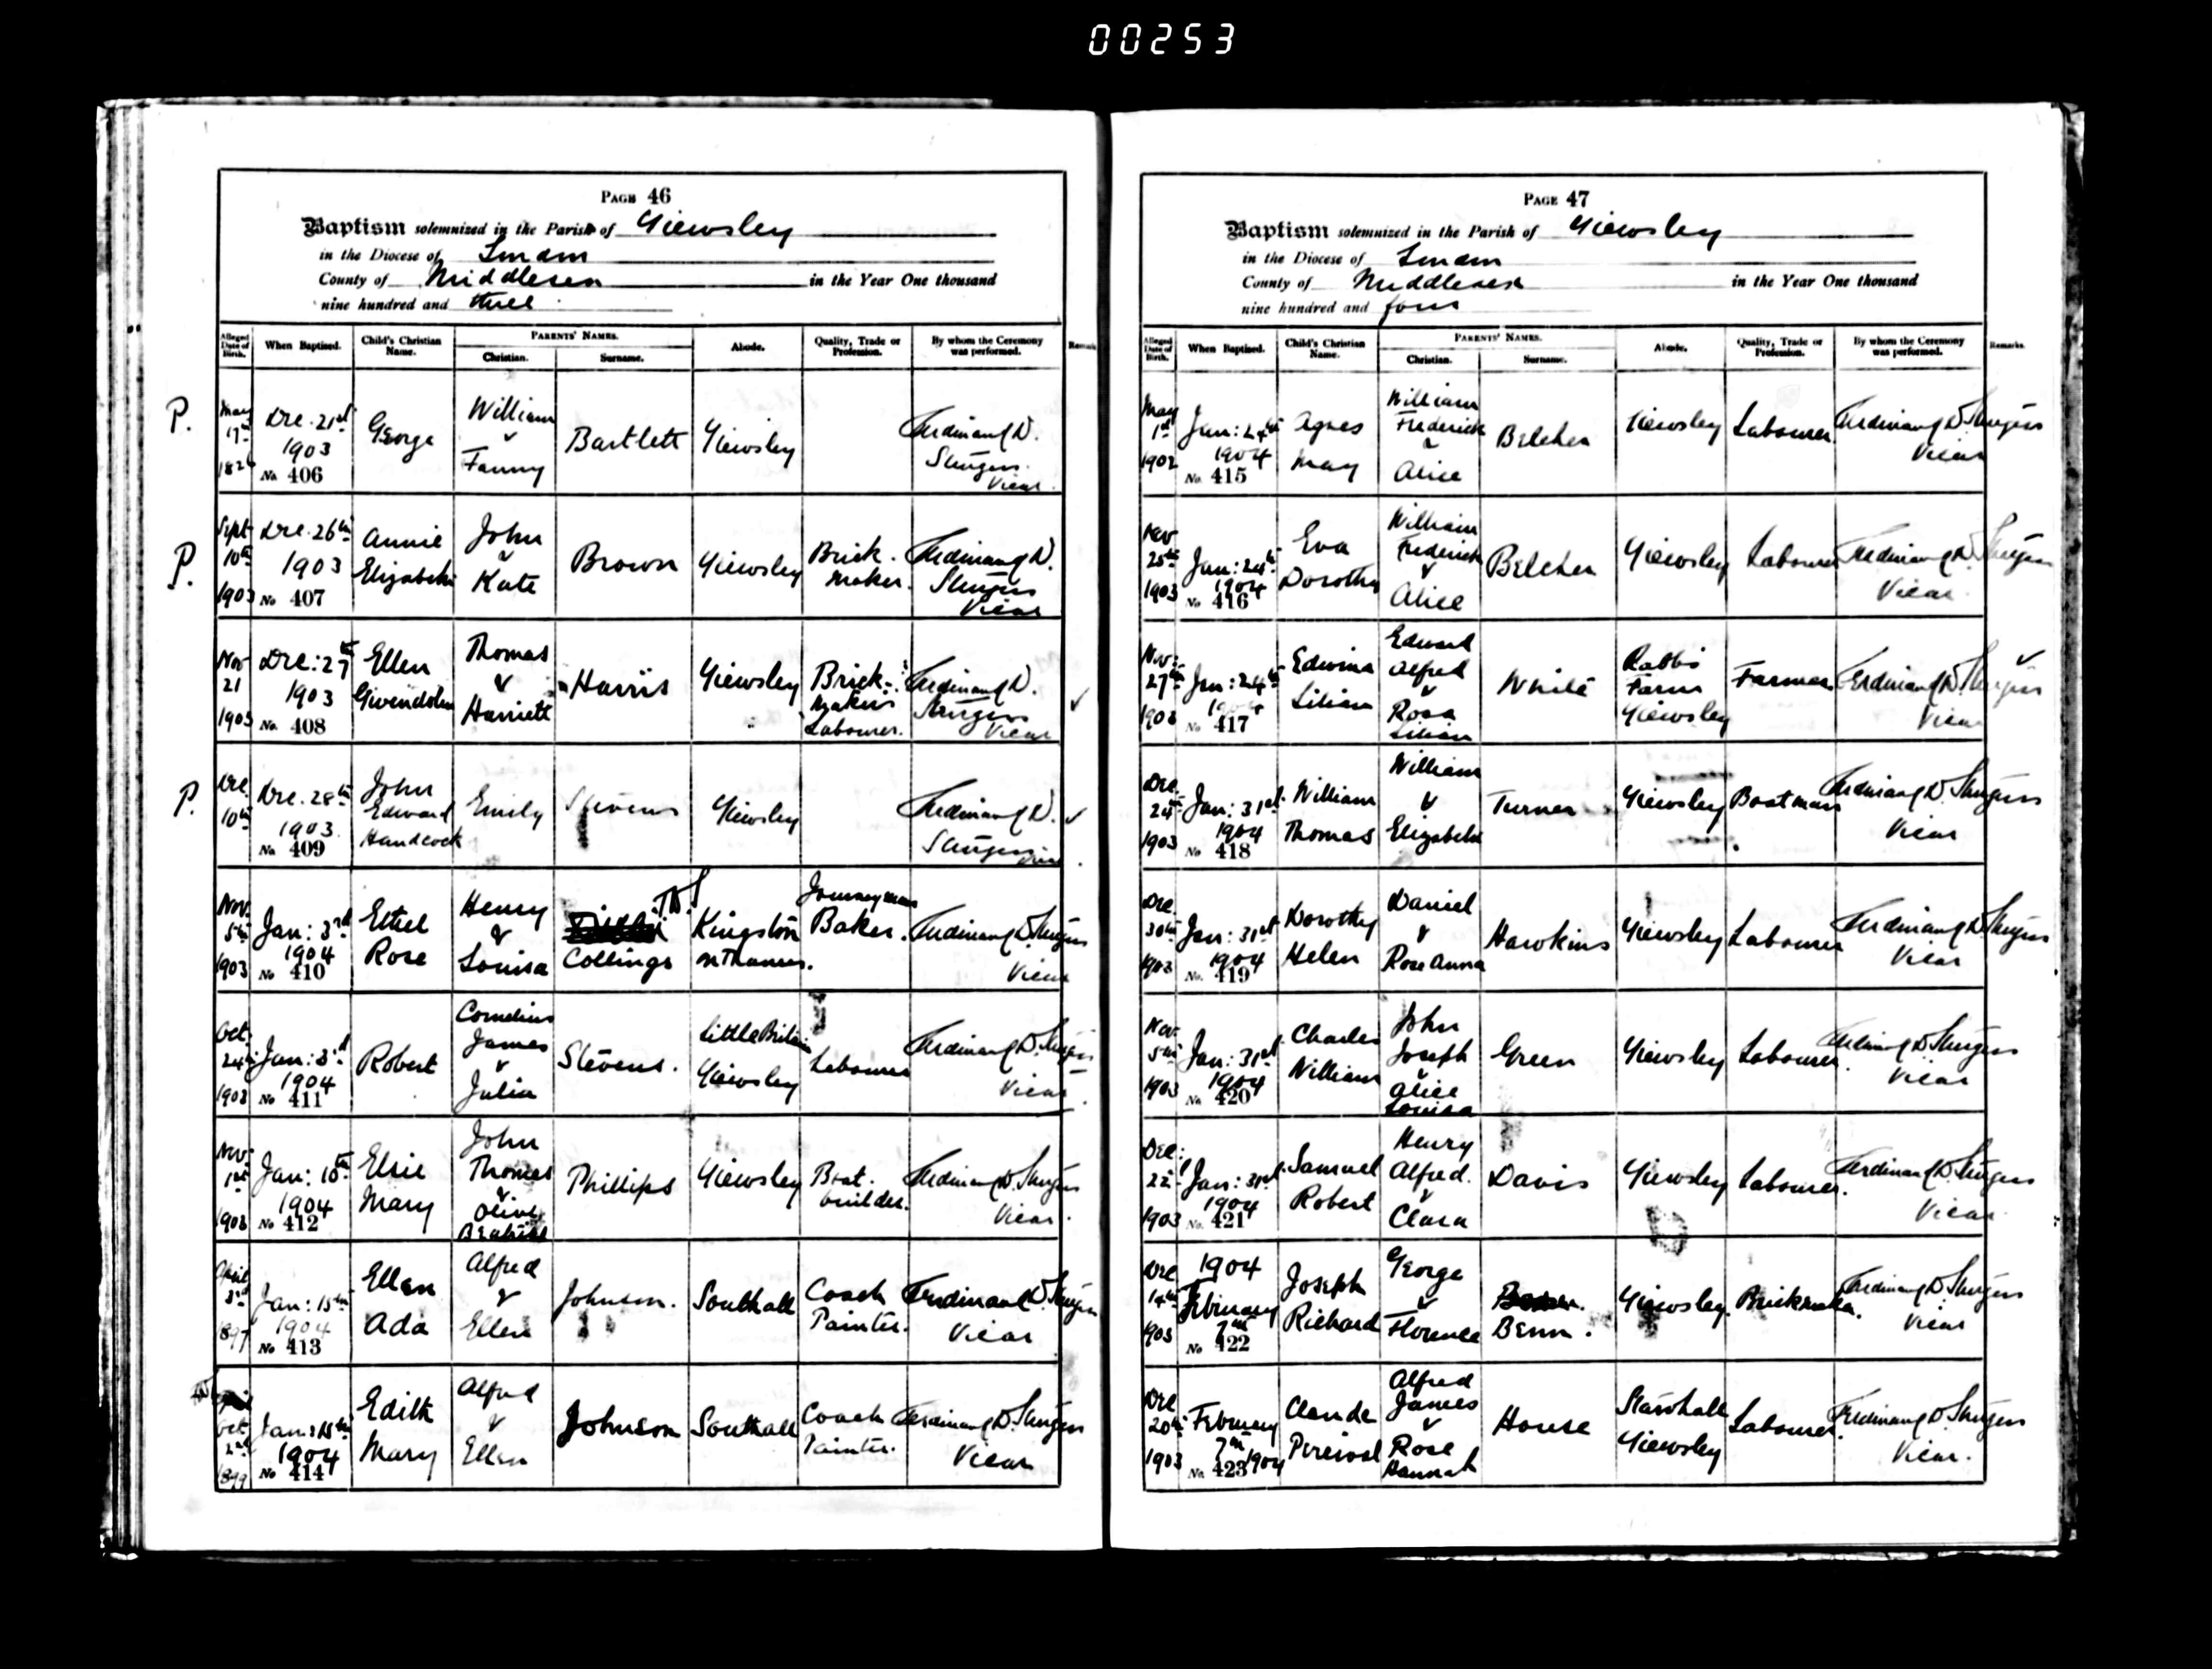 00253
PAGE 46
Baptism solemnized in the Parish of Yiewsley
in the Diocese of London
County of Middlesex in the Year One thousand
nine hundred and three
Alleged Date of Birth. When Baptized. Child's Christian Name. PARENTS' NAMES. Christian. Surname. Abode. Quality, Trade or Profession. By whom the Ceremony was performed. Remarks
P. May 17th Dec. 21st 1903 No. 406 George William & Fanny Bartlett Yiewsley Ferdinand D. Sturges Vicar
P. Sept 10th 1903 Dec. 26th 1903 No. 407 Annie Elizabeth John & Kate Brown Yiewsley Brick-maker. Ferdinand D. Sturges Vicar
Nov 21 1903 Dec: 27th 1903 No. 408 Ellen Gwendolen Thomas & Harriett Harris Yiewsley Brick-makers Labourer. Ferdinand D. Sturges Vicar ✓
P. Dec 10th Dec. 28th 1903 No. 409 John Edward Handcock Emily Stevens Yiewsley Ferdinand D. Sturges Vicar ✓
Nov. 5th 1903 Jan: 3rd 1904 No. 410 Ethel Rose Henry & Louisa Collings Kingston on Thames. Journeyman Baker. Ferdinand D. Sturges Vicar
Oct. 24th 1903 Jan: 3rd 1904 No. 411 Robert Cornelius James & Julia Stevens. Little Britain Yiewsley Labourer Ferdinand D. Sturges Vicar
Nov. 1st 1903 Jan: 10th 1904 No. 412 Elsie Mary John Thomas & Olive Beatrice Phillips Yiewsley Boat-builder. Ferdinand D. Sturges Vicar.
April 3rd 1897 Jan: 15th 1904 No. 413 Ellen Ada Alfred & Ellen Johnson. Southall Coach Painter. Ferdinand D. Sturges Vicar
Oct 2nd 1899 Jan: 15th 1904 No. 414 Edith Mary Alfred & Ellen Johnson Southall Coach Painter. Ferdinand D. Sturges Vicar
PAGE 47
Baptism solemnized in the Parish of Yiewsley
in the Diocese of London
County of Middlesex in the Year One thousand
nine hundred and four
Alleged Date of Birth. When Baptized. Child's Christian Name. PARENTS' NAMES. Christian. Surname. Abode. Quality, Trade or Profession. By whom the Ceremony was performed. Remarks.
May 1st 1902 Jan: 24th 1904 No. 415 Agnes May William Frederick & Alice Belcher Yiewsley Labourer Ferdinand D. Sturges Vicar
Nov 25th 1903 Jan: 24th 1904 No. 416 Eva Dorothy William Frederick & Alice Belcher Yiewsley Labourer Ferdinand D. Sturges Vicar
Nov: 27th 1903 Jan: 24th 1904 No. 417 Edwina Lilian Edward Alfred & Rosa Lilian White Rabbs Farm Yiewsley Farmer Ferdinand D. Sturges Vicar ✓
Dec. 24th 1903 Jan: 31st 1904 No. 418 William Thomas William & Elizabeth Turner Yiewsley Boatman Ferdinand D. Sturges Vicar
Dec 30th 1903 Jan: 31st 1904 No. 419 Dorothy Helen Daniel & Rose Anna Hawkins Yiewsley Labourer Ferdinand D. Sturges Vicar
Nov. 5th 1903 Jan: 31st 1904 No. 420 Charles William John Joseph & Alice Louisa Green Yiewsley Labourer. Ferdinand D. Sturges Vicar
Dec: 22 1903 Jan: 31st 1904 No. 421 Samuel Robert Henry Alfred. & Clara Davis Yiewsley Labourer. Ferdinand D. Sturges Vicar
Dec 14th 1903 1904 February 7th No. 422 Joseph Richard George & Florence Benn. Yiewsley. Brickmaker. Ferdinand D. Sturges Vicar
Dec 20th 1903 February 7th 1904 No. 423 Claude Percival Alfred James & Rose Hannah House Starvhall Yiewsley Labourer. Ferdinand D. Sturges Vicar.